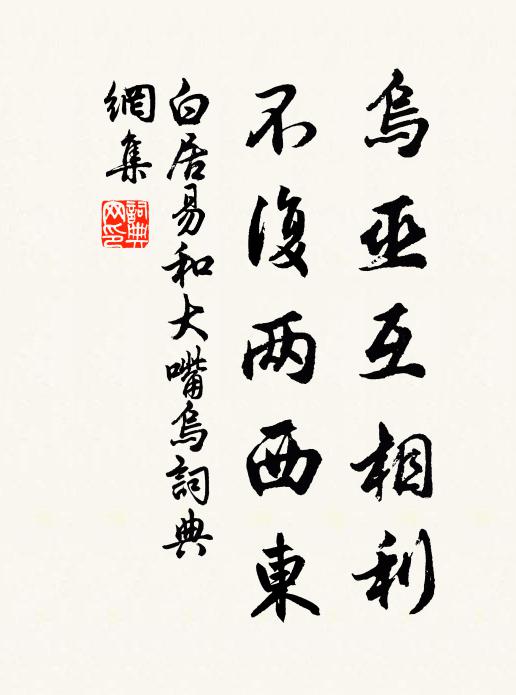 烏巫互相利
不復两西東
白居易和大嘴烏詞典
網集
詞典
网印